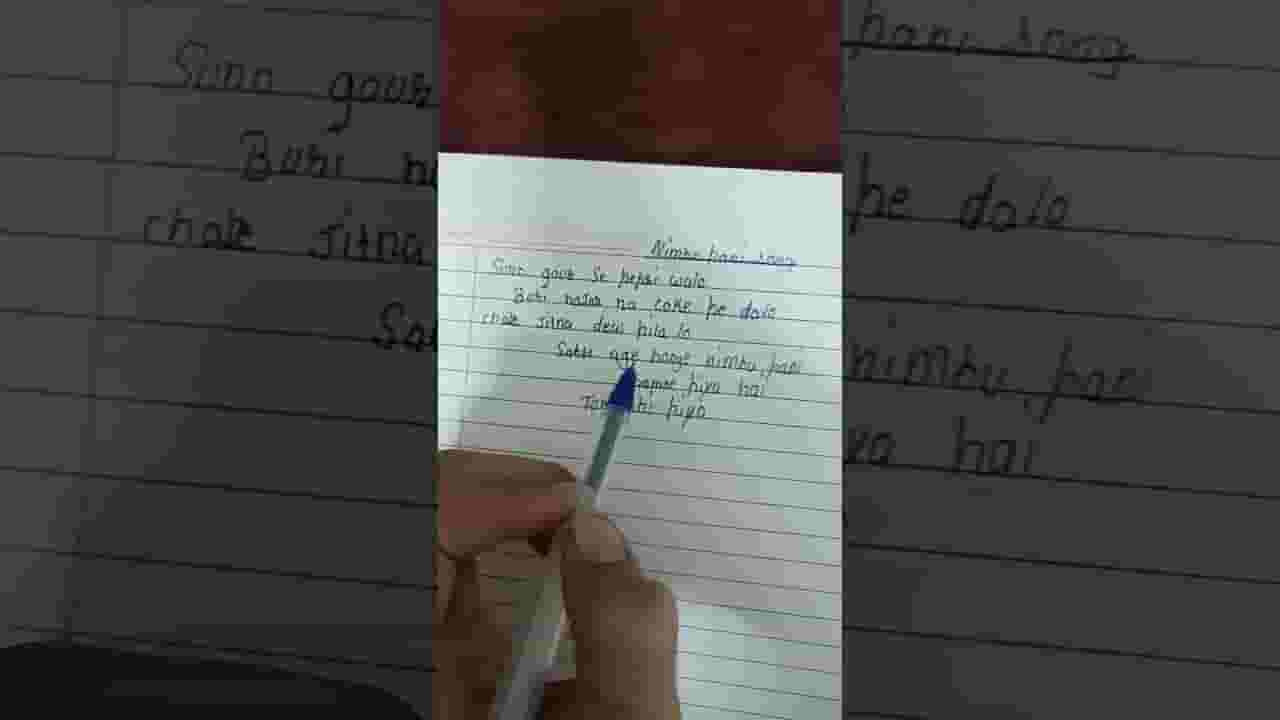 Nimbu pani song
Suno gour se pepsi walo
Buri nazar na coke pe dalo
chahe Jitna dew pila lo
Sabse age hoge nimbu pani
hamne piya hai
bhi piyo